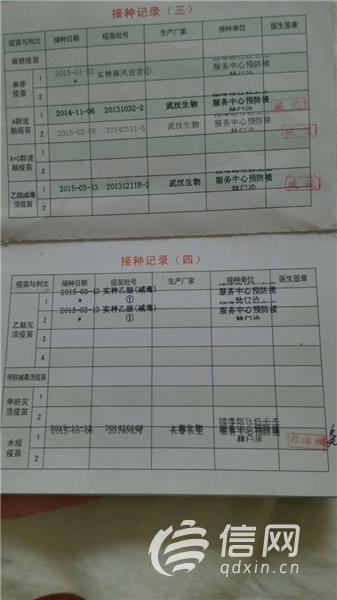 接种记录（三）
疫苗与剂次 接种日期 疫苗批号 生产厂家 接种单位 医生签章
麻腮疫苗
麻疹疫苗 1 2015-01-22 * 实种麻风疫苗① 服务中心预防接种门诊
2
A群流脑疫苗 1 2014-11-06 20131032-2 武汉生物 服务中心预防接种门诊
2 2015-02-06 20140311-3 武汉生物 服务中心预防接种门诊
A+C群流脑疫苗 1
2
乙脑减毒活疫苗 1 2015-03-13 201312118-2 武汉生物 服务中心预防接种门诊
2
接种记录（四）
疫苗与剂次 接种日期 疫苗批号 生产厂家 接种单位 医生签章
乙脑灭活疫苗 1 2015-03-13 * 实种乙脑(减毒)① 服务中心预防接种门诊
2 2015-03-13 * 实种乙脑(减毒)① 服务中心预防接种门诊
3
4
甲肝减毒活疫苗
甲肝灭活疫苗 1
2
水痘疫苗 1 服务中心预防接种门诊
2
信网
qdxin.cn